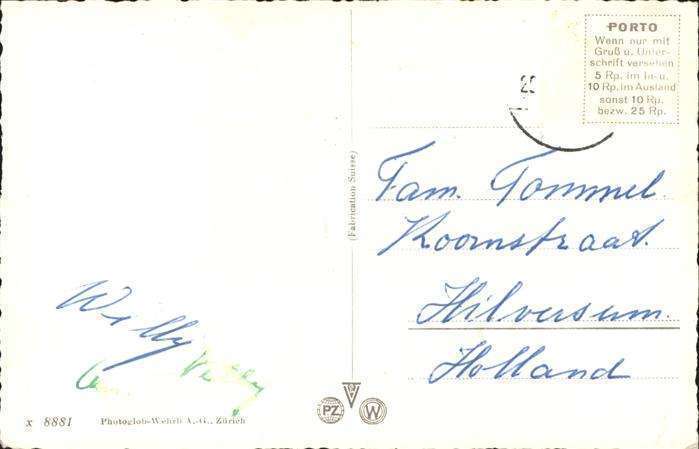 PORTO
Wenn nur mit
Gruß u. Unter-
schrift versehen
5 Rp. im In- u.
10 Rp. im Ausland
sonst 10 Rp.
bezw. 25 Rp.
25
(Fabrication Suisse)
Fam. Tommel.
Koornstraat.
Hilversum.
Holland
Willy
en Willy
x 8881 Photoglob-Wehrli A.-G., Zürich
PZ
W